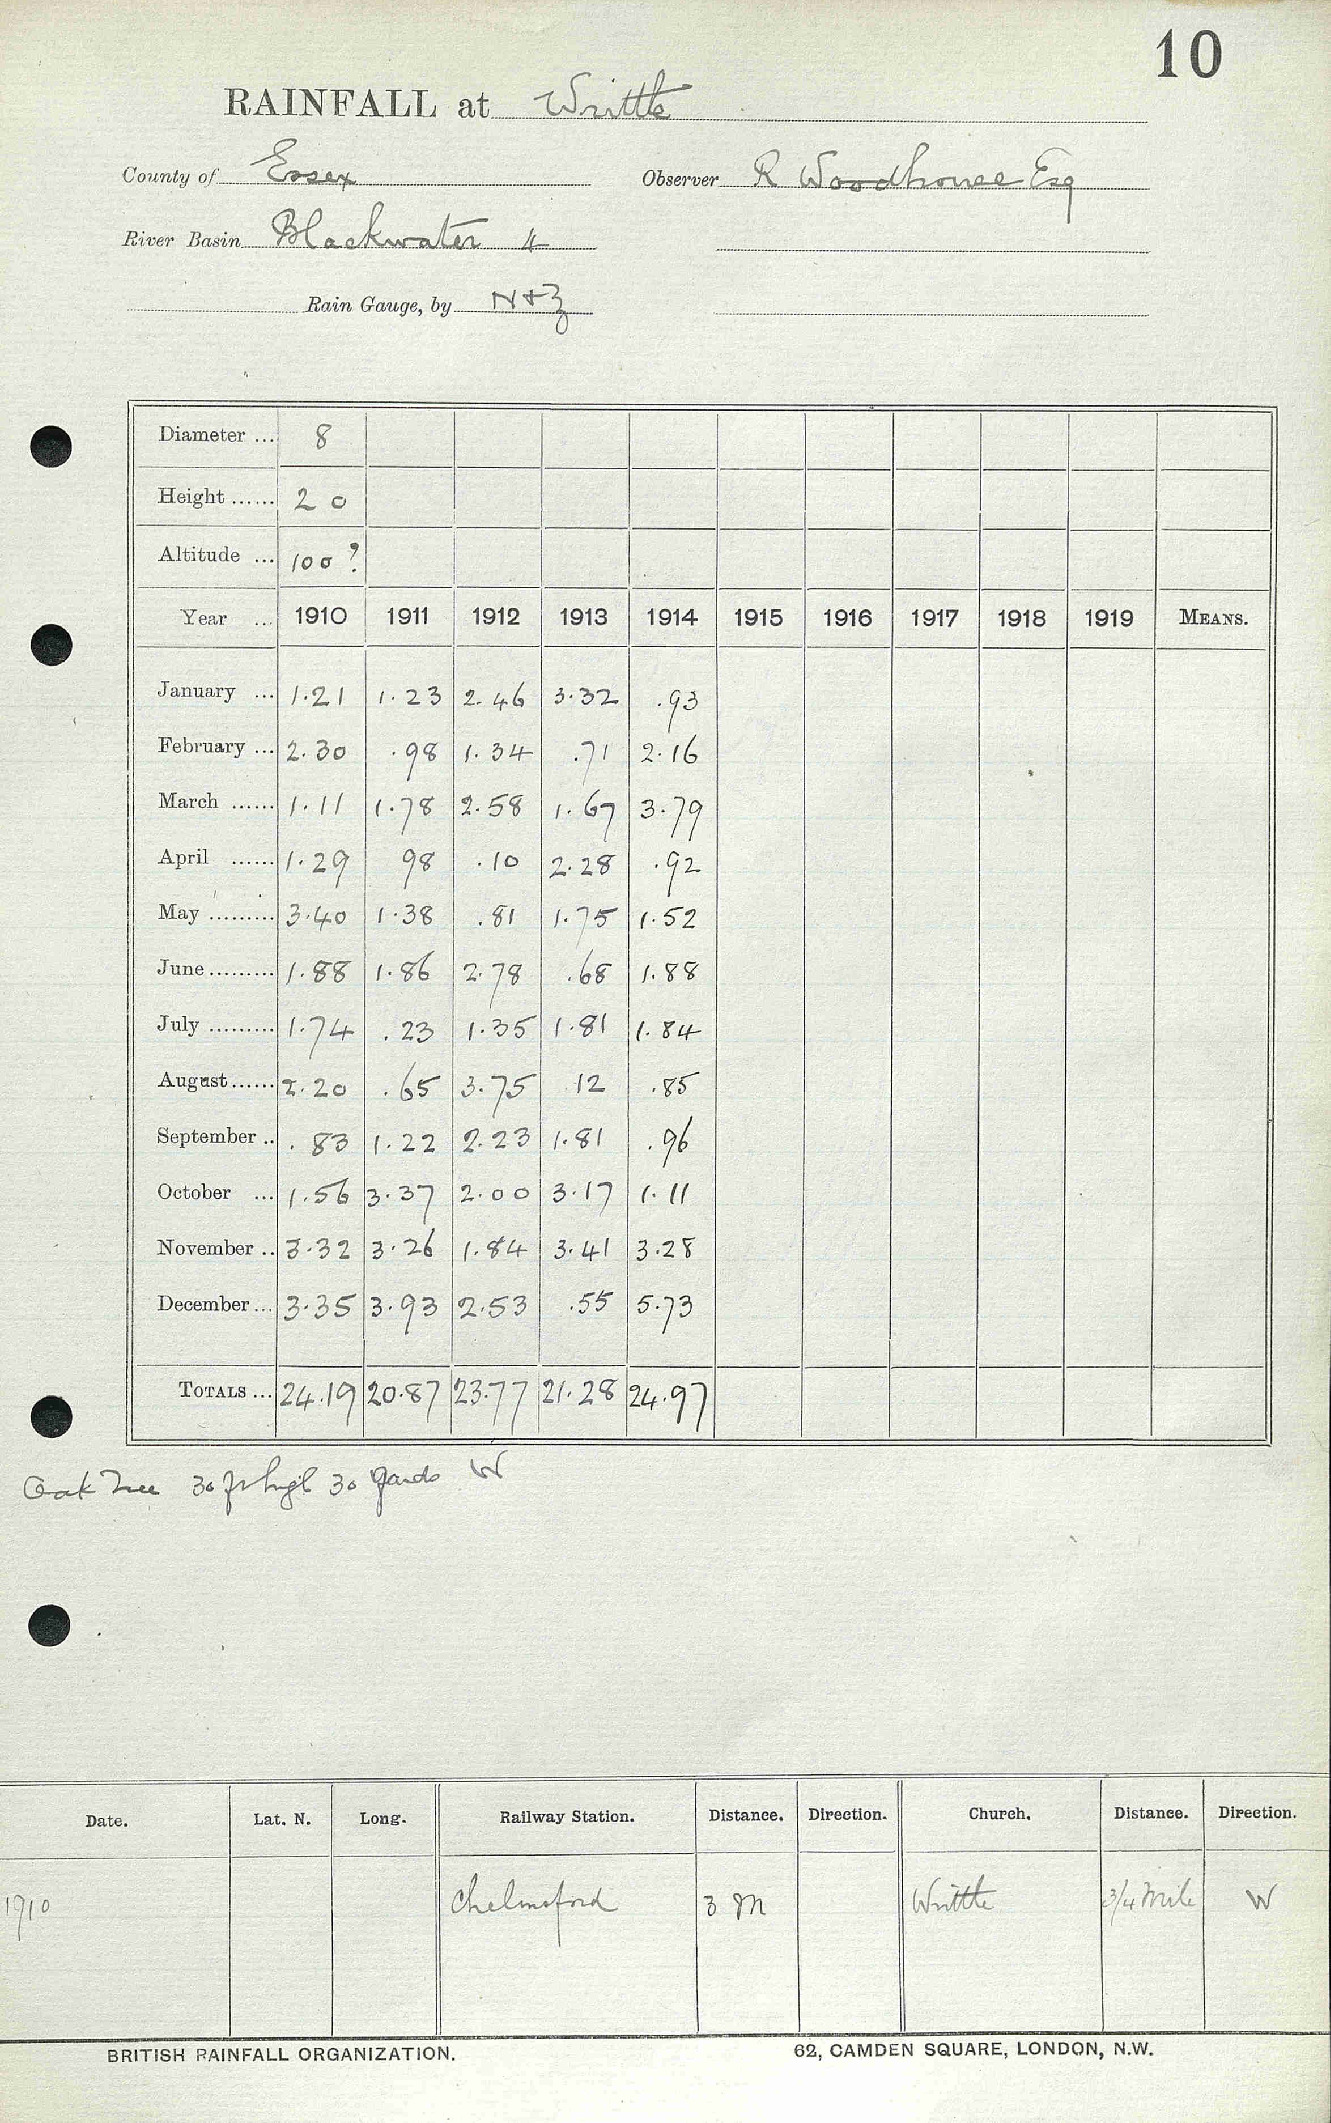 10
RAINFALL at Writtle
County of Essex Observer R Woodhouse Esq
River Basin Blackwater 4
Rain Gauge, by N+Z
Diameter ... 8
Height ...... 2 0
Altitude ... 100 ?
Year ... 1910 1911 1912 1913 1914 1915 1916 1917 1918 1919 MEANS.
January ... 1.21 1.23 2.46 3.32 .93
February ... 2.30 .98 1.34 .71 2.16
March ...... 1.11 1.78 2.58 1.67 3.79
April ...... 1.29 98 .10 2.28 .92
May ......... 3.40 1.38 .81 1.75 1.52
June ......... 1.88 1.86 2.78 .68 1.88
July ......... 1.74 .23 1.35 1.81 1.84
August ...... 2.20 .65 3.75 12 .85
September .. .83 1.22 2.23 1.81 .96
October ... 1.56 3.37 2.00 3.17 1.11
November .. 3.32 3.26 1.84 3.41 3.28
December ... 3.35 3.93 2.53 .55 5.73
TOTALS ... 24.19 20.87 23.77 21.28 24.97
Oak Tree 30 ft high 30 yards W
Date. Lat. N. Long. Railway Station. Distance. Direction. Church. Distance. Direction.
1910 Chelmsford 3 M Writtle 3/4 Mile W
BRITISH RAINFALL ORGANIZATION. 62, CAMDEN SQUARE, LONDON, N.W.